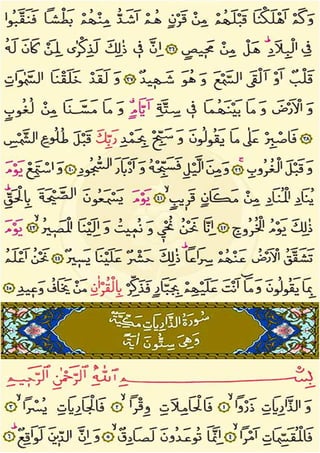 وَكَمْ أَهْلَكْنَا قَبْلَهُمْ مِنْ قَرْنٍ هُمْ أَشَدُّ مِنْهُمْ بَطْشًا فَنَقَّبُوا
فِي الْبِلَادِ هَلْ مِنْ مَحِيصٍ ﴿۳۶﴾ إِنَّ فِي ذَٰلِكَ لَذِكْرَىٰ لِمَنْ كَانَ لَهُ
قَلْبٌ أَوْ أَلْقَى السَّمْعَ وَهُوَ شَهِيدٌ ﴿۳۷﴾ وَلَقَدْ خَلَقْنَا السَّمَاوَاتِ
وَالْأَرْضَ وَمَا بَيْنَهُمَا فِي سِتَّةِ أَيَّامٍ وَمَا مَسَّنَا مِنْ لُغُوبٍ
﴿۳۸﴾ فَاصْبِرْ عَلَىٰ مَا يَقُولُونَ وَسَبِّحْ بِحَمْدِ رَبِّكَ قَبْلَ طُلُوعِ الشَّمْسِ
وَقَبْلَ الْغُرُوبِ ﴿۳۹﴾ وَمِنَ اللَّيْلِ فَسَبِّحْهُ وَأَدْبَارَ السُّجُودِ ﴿۴۰﴾ وَاسْتَمِعْ يَوْمَ
يُنَادِ الْمُنَادِ مِنْ مَكَانٍ قَرِيبٍ ﴿۴۱﴾ يَوْمَ يَسْمَعُونَ الصَّيْحَةَ بِالْحَقِّ
ذَٰلِكَ يَوْمُ الْخُرُوجِ ﴿۴۲﴾ إِنَّا نَحْنُ نُحْيِي وَنُمِيتُ وَإِلَيْنَا الْمَصِيرُ ﴿۴۳﴾ يَوْمَ
تَشَقَّقُ الْأَرْضُ عَنْهُمْ سِرَاعًا ذَٰلِكَ حَشْرٌ عَلَيْنَا يَسِيرٌ ﴿۴۴﴾ نَحْنُ أَعْلَمُ
بِمَا يَقُولُونَ وَمَا أَنْتَ عَلَيْهِمْ بِجَبَّارٍ فَذَكِّرْ بِالْقُرْآنِ مَنْ يَخَافُ وَعِيدِ ﴿۴۵﴾
سُورَةُ الذَّارِيَاتِ مَكِّيَّةٌ
وَهِيَ سِتُّونَ آيَةً
بِسْمِ اللَّهِ الرَّحْمَٰنِ الرَّحِيمِ
وَالذَّارِيَاتِ ذَرْوًا ﴿۱﴾ فَالْحَامِلَاتِ وِقْرًا ﴿۲﴾ فَالْجَارِيَاتِ يُسْرًا ﴿۳﴾
فَالْمُقَسِّمَاتِ أَمْرًا ﴿۴﴾ إِنَّمَا تُوعَدُونَ لَصَادِقٌ ﴿۵﴾ وَإِنَّ الدِّينَ لَوَاقِعٌ ﴿۶﴾